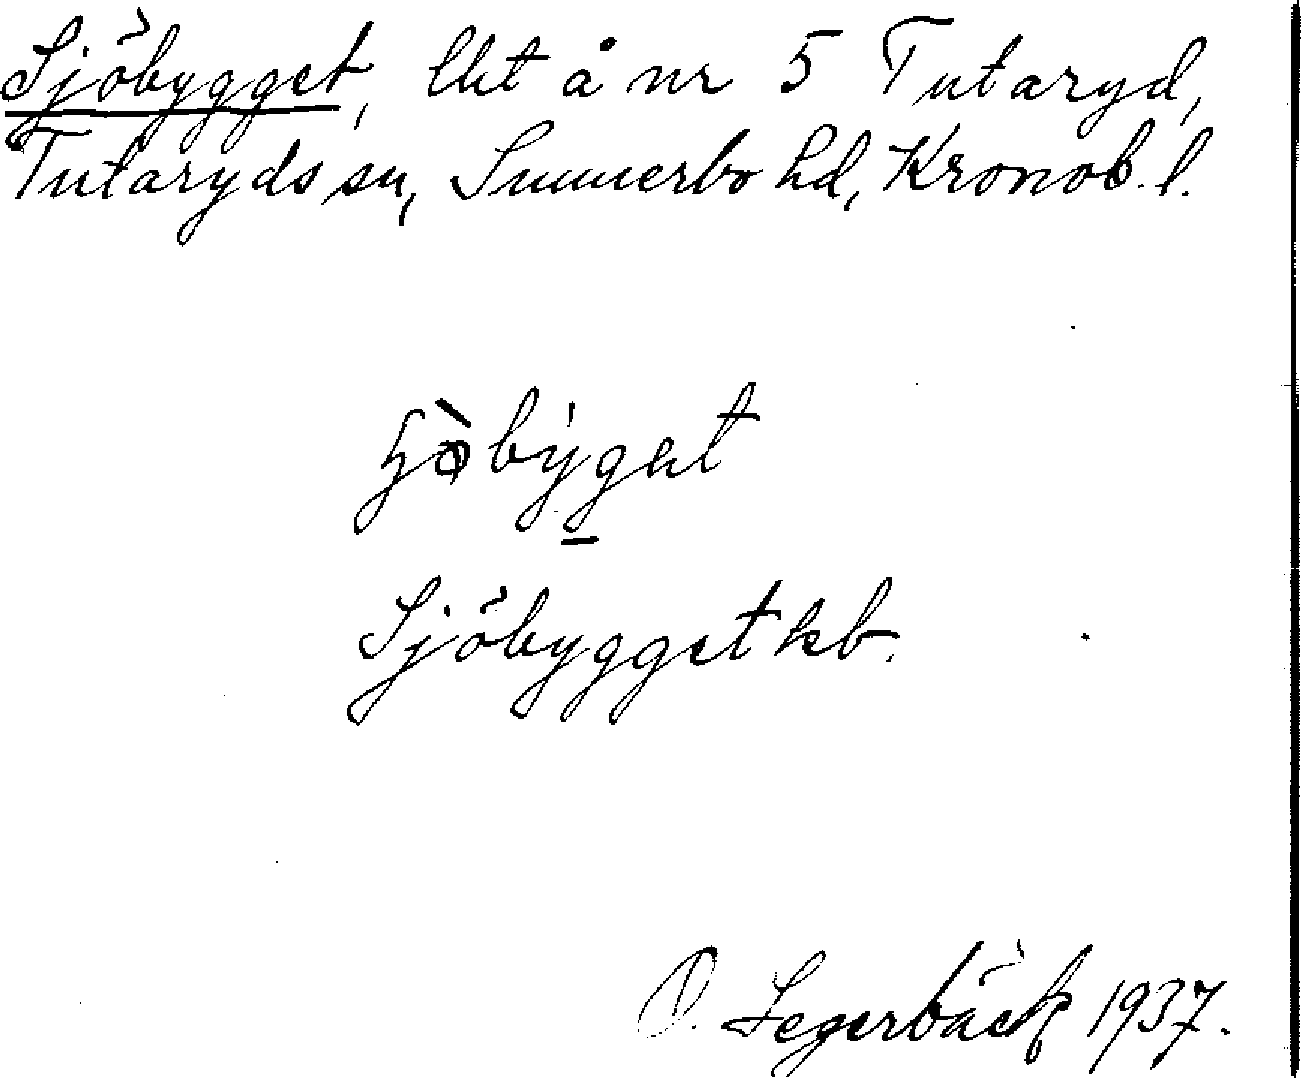 Sjöbygget, lht å nr 5 Tutaryd,
Tutaryds sn, Sunnerbo hd, Kronob. l.
Sjöbygget kb.
Segerbäck 1937.